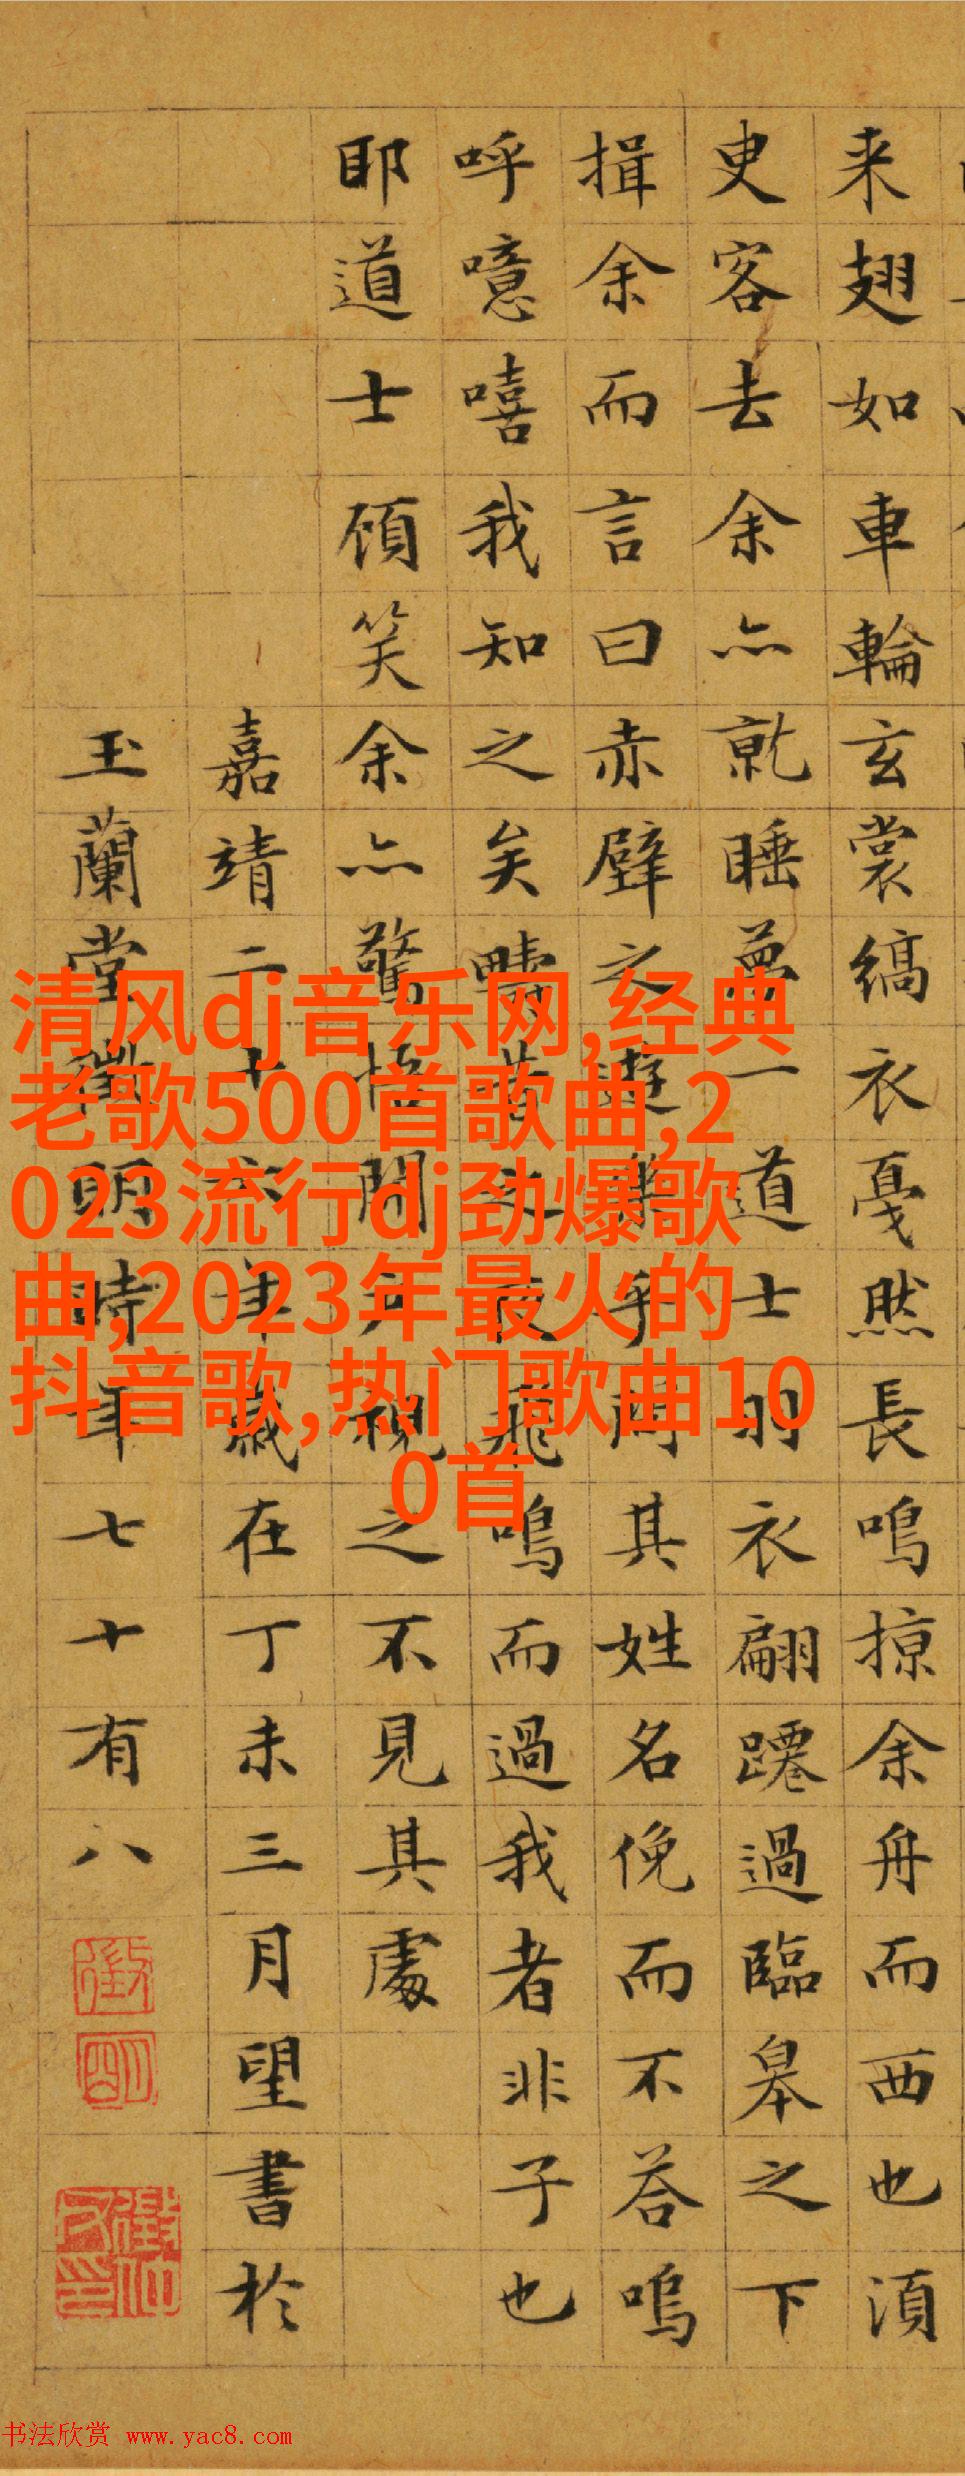 来翅如車輪玄裳縞衣戛然長鳴掠余舟而西也須
臾客去余亦就睡夢一道士羽衣翩躚過臨皋之下
揖余而言曰赤壁之遊樂乎問其姓名俛而不荅嗚
呼噫嘻我知之矣疇昔之夜飛鳴而過我者非子也
耶道士顧笑余亦驚悟開户視之不見其處
嘉靖二十六年歲在丁未三月望書於
玉蘭堂徵明時年七十有八
清风dj音乐网,经典
老歌500首歌曲,2
023流行dj劲爆歌
曲,2023年最火的
抖音歌,热门歌曲10
0首
书法欣赏 www.yac8.com